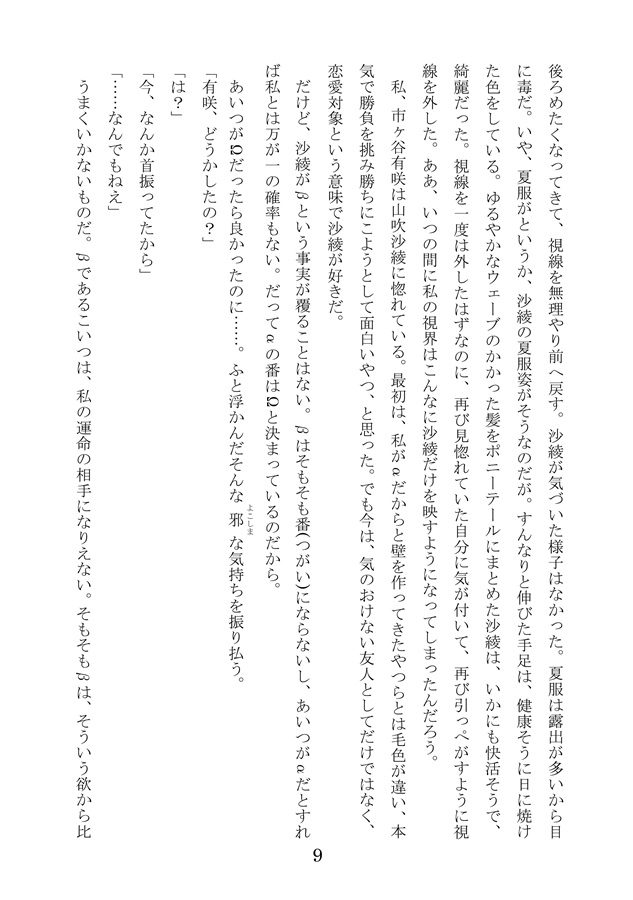 後ろめたくなってきて、視線を無理やり前へ戻す。沙綾が気づいた様子はなかった。夏服は露出が多いから目
に毒だ。いや、夏服がというか、沙綾の夏服姿がそうなのだが。すんなりと伸びた手足は、健康そうに日に焼け
た色をしている。ゆるやかなウェーブのかかった髪をポニーテールにまとめた沙綾は、いかにも快活そうで、
綺麗だった。視線を一度は外したはずなのに、再び見惚れていた自分に気が付いて、再び引っぺがすように視
線を外した。ああ、いつの間に私の視界はこんなに沙綾だけを映すようになってしまったんだろう。
私、市ヶ谷有咲は山吹沙綾に惚れている。最初は、私がαだからと壁を作ってきたやつらとは毛色が違い、本
気で勝負を挑み勝ちにこようとして面白いやつ、と思った。でも今は、気のおけない友人としてだけではなく、
恋愛対象という意味で沙綾が好きだ。
だけど、沙綾がβという事実が覆ることはない。βはそもそも番(つがい)にならないし、あいつがαだとすれ
ば私とは万が一の確率もない。だってαの番はΩと決まっているのだから。
あいつがΩだったら良かったのに……。ふと浮かんだそんな邪よこしまな気持ちを振り払う。
「有咲、どうかしたの？」
「は？」
「今、なんか首振ってたから」
「……なんでもねえ」
うまくいかないものだ。βであるこいつは、私の運命の相手になりえない。そもそもβは、そういう欲から比
9